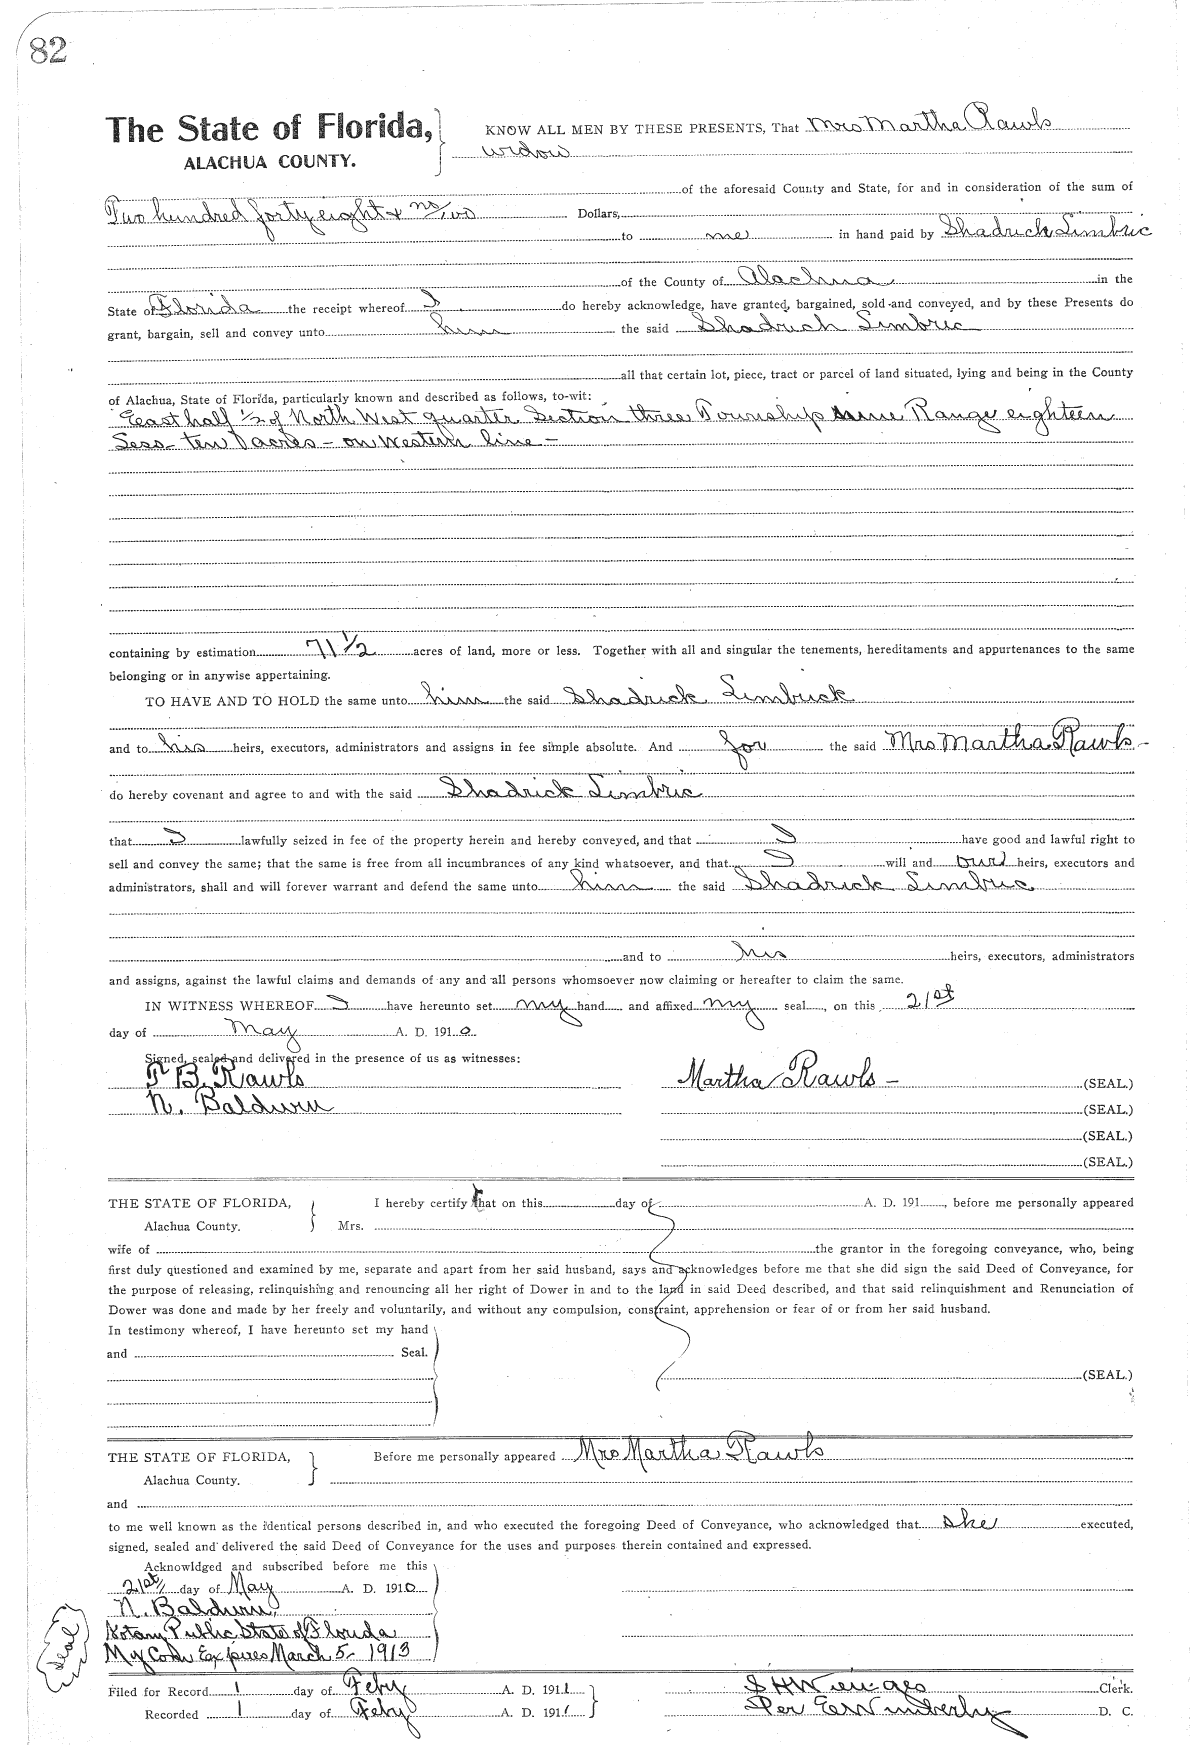 82
The State of Florida, KNOW ALL MEN BY THESE PRESENTS, That Mrs Martha Rawls
ALACHUA COUNTY. widow
of the aforesaid County and State, for and in consideration of the sum of
Two hundred forty eight & no/100 Dollars,
to me in hand paid by Shadrick Limbric
of the County of Alachua in the
State of Florida the receipt whereof I do hereby acknowledge, have granted, bargained, sold and conveyed, and by these Presents do
grant, bargain, sell and convey unto him the said Shadrick Limbric
all that certain lot, piece, tract or parcel of land situated, lying and being in the County
of Alachua, State of Florida, particularly known and described as follows, to-wit:
East half 1/2 of North West quarter Section three Township nine Range eighteen
Less ten acres - on Western line -
containing by estimation 71 1/2 acres of land, more or less. Together with all and singular the tenements, hereditaments and appurtenances to the same
belonging or in anywise appertaining.
TO HAVE AND TO HOLD the same unto him the said Shadrick Limbrick
and to his heirs, executors, administrators and assigns in fee simple absolute. And for the said Mrs Martha Rawls -
do hereby covenant and agree to and with the said Shadrick Limbric
that I lawfully seized in fee of the property herein and hereby conveyed, and that I have good and lawful right to
sell and convey the same; that the same is free from all incumbrances of any kind whatsoever, and that I will and our heirs, executors and
administrators, shall and will forever warrant and defend the same unto him the said Shadrick Limbric
and to his heirs, executors, administrators
and assigns, against the lawful claims and demands of any and all persons whomsoever now claiming or hereafter to claim the same.
IN WITNESS WHEREOF I have hereunto set my hand and affixed my seal, on this 21st
day of May A. D. 1910.
Signed, sealed and delivered in the presence of us as witnesses:
T B. Rawls Martha Rawls - (SEAL.)
N. Baldwin (SEAL.)
(SEAL.)
(SEAL.)
THE STATE OF FLORIDA, I hereby certify that on this day of A. D. 191 , before me personally appeared
Alachua County. Mrs.
wife of the grantor in the foregoing conveyance, who, being
first duly questioned and examined by me, separate and apart from her said husband, says and acknowledges before me that she did sign the said Deed of Conveyance, for
the purpose of releasing, relinquishing and renouncing all her right of Dower in and to the land in said Deed described, and that said relinquishment and Renunciation of
Dower was done and made by her freely and voluntarily, and without any compulsion, constraint, apprehension or fear of or from her said husband.
In testimony whereof, I have hereunto set my hand
and Seal.
(SEAL.)
THE STATE OF FLORIDA, Before me personally appeared Mrs Martha Rawls
Alachua County.
and
to me well known as the identical persons described in, and who executed the foregoing Deed of Conveyance, who acknowledged that she executed,
signed, sealed and delivered the said Deed of Conveyance for the uses and purposes therein contained and expressed.
Acknowldged and subscribed before me this
21st day of May A. D. 1910
N. Baldwin,
Notary Public State of Florida
My Com Expires March 5- 1913
Seal
Filed for Record 1 day of Feby A. D. 1911 S H Wienges Clerk.
Recorded 1 day of Feby A. D. 1911 Per E W Wimberly D. C.